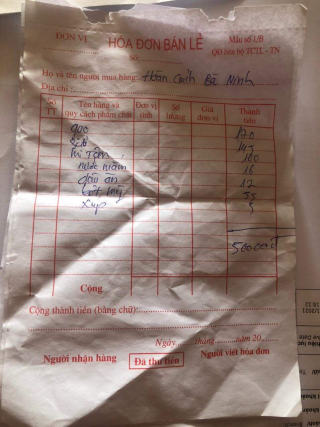 ĐƠN VỊ
HÓA ĐƠN BÁN LẺ
Mẫu số 1/B
QĐ liên bộ TCTL - TN
Số:
Họ và tên người mua hàng: Hoàn Cảnh Bà Ninh
Địa chỉ:
Số TT Tên hàng và quy cách phẩm chất Đơn vị tính Số lượng Giá đơn vị Thành tiền
gạo 170
145
mì Tôm 100
nước mắm 16
dầu ăn 12
bột ngọt 55
xúp
500000đ
Cộng
Cộng thành tiền (bằng chữ):
Ngày......tháng......năm 20
Người nhận hàng
Đã thu tiền
Người viết hóa đơn